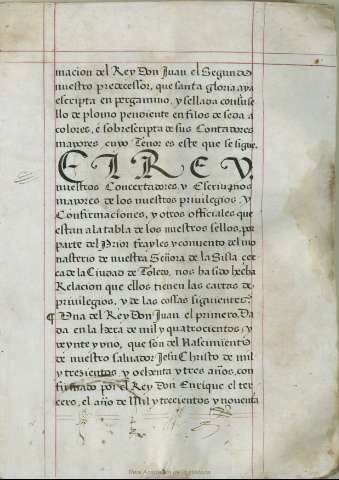 macion del Rey Don Juan el Segundo
nuestro predecessor, que santa gloria aya
escripta en pergamino, y sellada con su se
llo de plomo pendiente en filos de seda a
colores, é sobrescripta de sus Contadores
mayores, cuyo Tenor es este que se sigue.
El REY,
nuestros Concertadores, y Escriuanos
mayores de los nuestros priuilegios, y
Confirmaciones, y otros officiales que
estan a la tabla de los nuestros sellos, por
parte del Prior frayles y conuento del mo
nasterio de nuestra Señora de la Sisla cer
ca de la Ciudad de Toledo, nos ha sido hecha
Relacion que ellos tienen las cartas de
priuilegios, y de las cossas siguientes:
Una del Rey Don Juan el primero, Da
da en la hera de mil y quatrocientos, y
veynte y uno, que són del Nascimiento
de nuestro saluador Jesu Christo de mil
y trezientos, y ochenta y tres años, con
firmado por el Rey Don Enrique el ter
cero, el año de Mil y trecientos y nouenta
Real Academia de la Historia